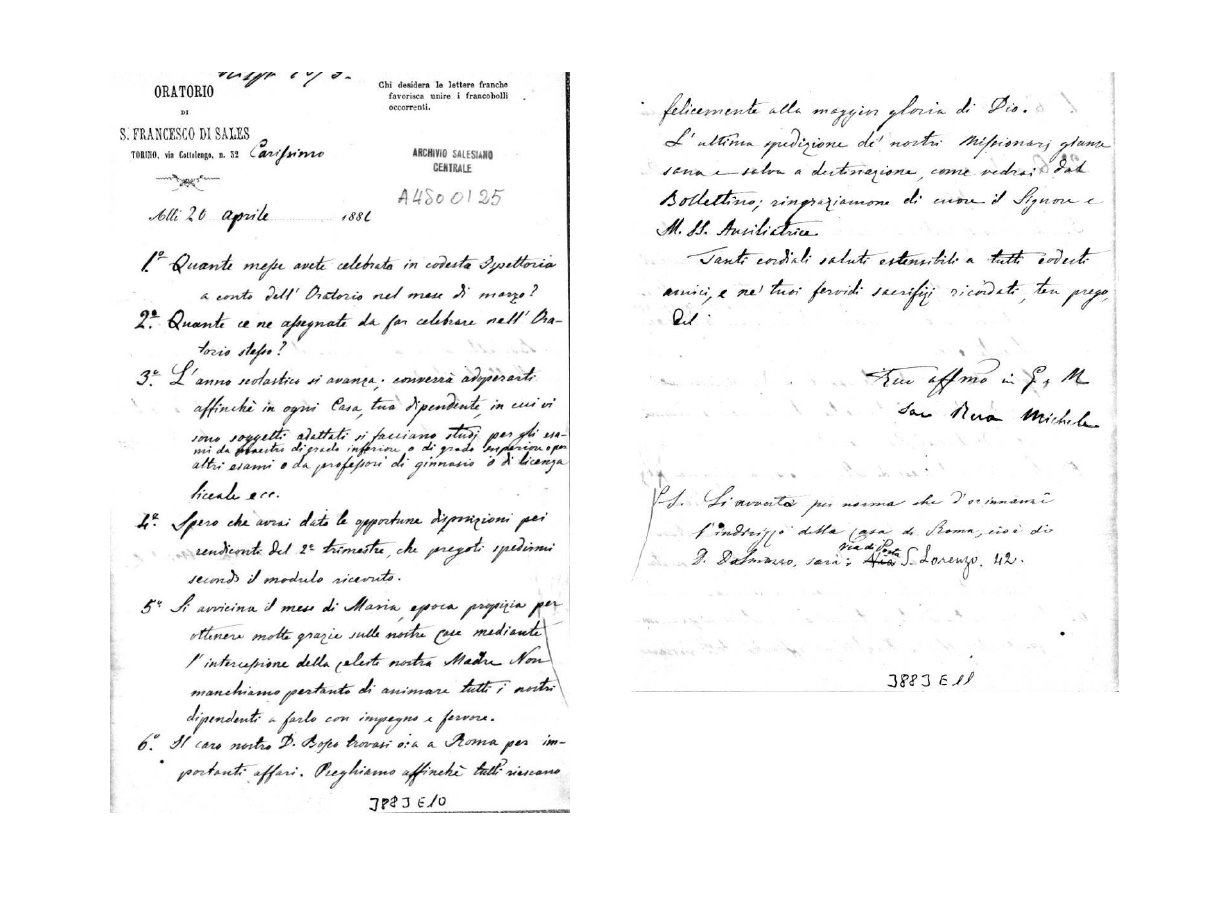 ORATORIO
DI
S. FRANCESCO DI SALES
TORINO, via Cottolengo, n. 32
Chi desidera le lettere franche
favorisca unire i francobolli
occorrenti.
Carissimo
ARCHIVIO SALESIANO
CENTRALE
A4500125
Alli 20 aprile 188
1.º Quante messe avete celebrato in codesta Ispettoria
a conto dell'Oratorio nel mese di marzo?
2º. Quante ce ne assegnate da far celebrare nell'Ora-
torio stesso?
3º. L'anno scolastico si avanza; converrà adoperarti
affinchè in ogni Casa, tua dipendente, in cui vi
sono soggetti adattati si facciano studi per gli esa-
mi da maestro di grado inferiore o di grado superiore o per
altri esami o da professori di ginnasio o di licenza
liceale ecc.
4º. Spero che avrai dato le opportune disposizioni pei
rendiconti del 2º trimestre, che pregoti spedirmi
secondo il modulo ricevuto.
5º Si avvicina il mese di Maria, epoca propizia per
ottenere molte grazie sulle nostre case mediante
l'intercessione della celeste nostra Madre Non
manchiamo pertanto di animare tutti i nostri
dipendenti a farlo con impegno e fervore.
6º. Il caro nostro D. Bosco trovasi ora a Roma per im-
portanti affari. Preghiamo affinchè tutti riescano
3883 E10
felicemente alla maggior gloria di Dio.
L'ultima spedizione de' nostri Missionarj giunse
sana e salva a destinazione, come vedrai dal
Bollettino; ringraziamone di cuore il Signore e
M. SS. Ausiliatrice.
Tanti cordiali saluti estensibili a tutti codesti
amici, e ne' tuoi fervidi sacrifizj ricordati, ten prego,
del
Tuo affmo in G. e M
Sac Rua Michele
P.S. Si avverta per norma che d'orinnanzi
l'indirizzo della casa di Roma, cioè di
D. Dalmazzo, sarà: via di Porta S. Lorenzo, 42.
3883 E11